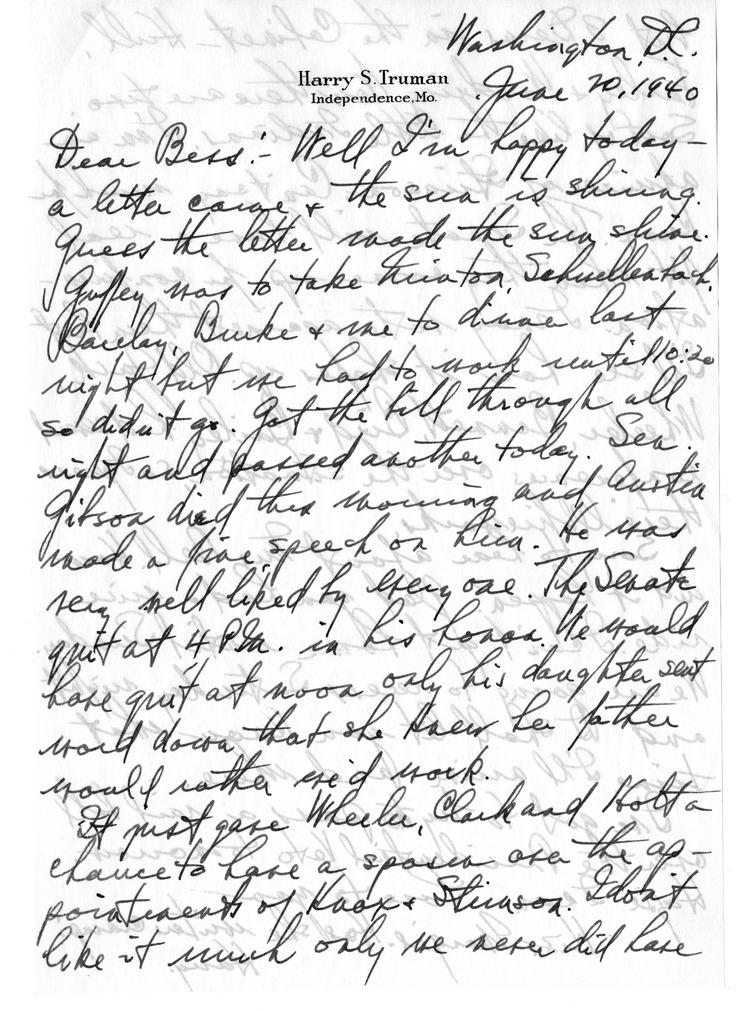 Washington, D.C.
Harry S. Truman
Independence, Mo.
June 20, 1940
Dear Bess:- Well I'm happy today-
a letter came & the sun is shining.
Guess the letter made the sun shine.
Guffey was to take Minton, Schwellenbach,
Barclay, Burke & me to dinner last
night but we had to work until 10:20
so didn't go. Got the bill through all
right and passed another today. Sen.
Gibson died this morning and Austin
made a fine speech on him. He was
very well liked by everyone. The Senate
quit at 4 P.M. in his honor. We would
have quit at noon only his daughter sent
word down that she knew her father
would rather we'd work.
It just gave Wheeler, Clark and Holt a
chance to have a spasm over the ap-
pointments of Knox & Stimson. I don't
like it much only we never did have